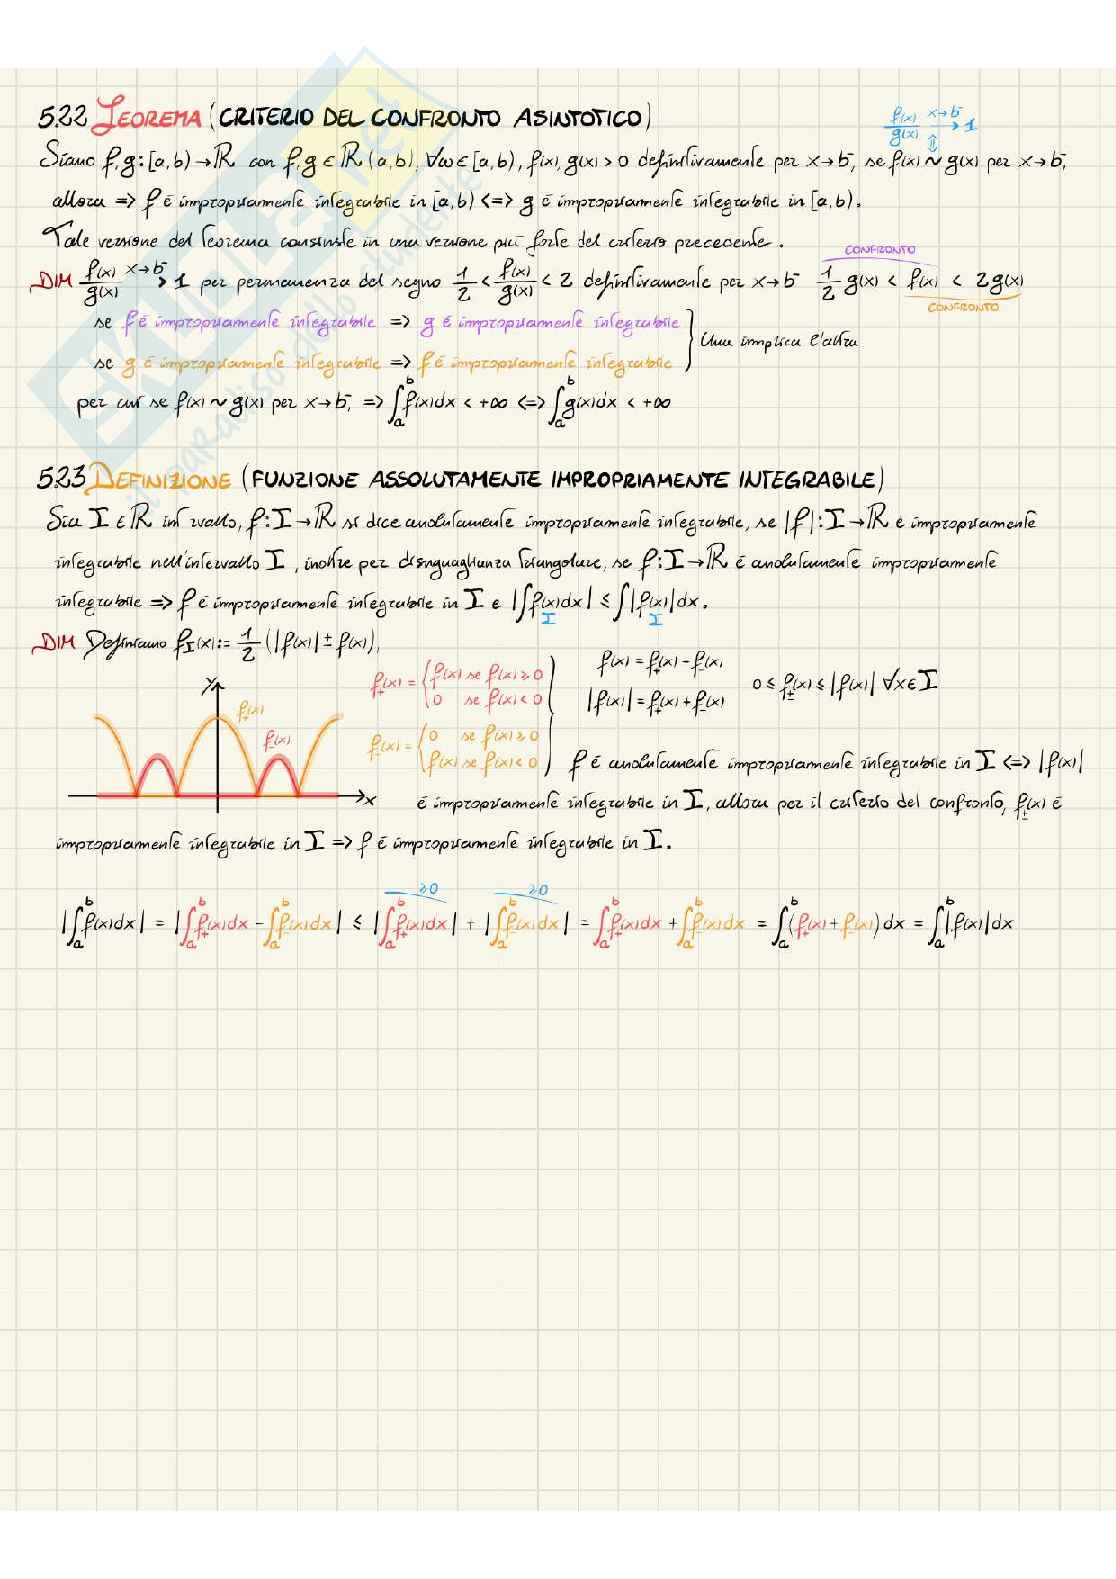 5.22 TEOREMA (CRITERIO DEL CONFRONTO ASINTOTICO)
f(x)/g(x) x→b⁻ → 1
⇕
Siano f,g:[a,b)→R con f,g ∈ R(a,b), ∀ω∈[a,b), f(x),g(x)>0 definitivamente per x→b⁻, se f(x)~g(x) per x→b⁻,
allora => f è impropriamente integrabile in [a,b) <=> g è impropriamente integrabile in [a,b).
Tale versione del teorema consiste in una versione più forte del criterio precedente.
DIM f(x)/g(x) x→b⁻ → 1 per permanenza del segno 1/2 < f(x)/g(x) < 2 definitivamente per x→b⁻ 1/2 g(x) < f(x) < 2g(x)
CONFRONTO
CONFRONTO
se f è impropriamente integrabile => g è impropriamente integrabile
se g è impropriamente integrabile => f è impropriamente integrabile
} Una implica l'altra
per cui se f(x)~g(x) per x→b⁻, => ∫ₐᵇ f(x)dx < +∞ <=> ∫ₐᵇ g(x)dx < +∞
5.23 DEFINIZIONE (FUNZIONE ASSOLUTAMENTE IMPROPRIAMENTE INTEGRABILE)
Sia I ∈ R intervallo, f:I→R si dice assolutamente impropriamente integrabile, se |f|:I→R è impropriamente
integrabile nell'intervallo I, inoltre per disuguaglianza triangolare, se f:I→R è assolutamente impropriamente
integrabile => f è impropriamente integrabile in I e |∫_I f(x)dx| ≤ ∫_I |f(x)|dx.
DIM Definiamo f±(x):= 1/2 (|f(x)| ± f(x)),
f₊(x) = { f(x) se f(x)≥0
0 se f(x)<0 )
f₋(x) = { 0 se f(x)≥0
f(x) se f(x)<0 )
f(x) = f₊(x) - f₋(x)
|f(x)| = f₊(x) + f₋(x)
0 ≤ f±(x) ≤ |f(x)| ∀x∈I
y
f₊(x)
f₋(x)
x
f è assolutamente impropriamente integrabile in I <=> |f(x)|
è impropriamente integrabile in I, allora per il criterio del confronto, f±(x) è
impropriamente integrabile in I => f è impropriamente integrabile in I.
≥0 ≥0
|∫ₐᵇ f(x)dx| = |∫ₐᵇ f₊(x)dx - ∫ₐᵇ f₋(x)dx| ≤ |∫ₐᵇ f₊(x)dx| + |∫ₐᵇ f₋(x)dx| = ∫ₐᵇ f₊(x)dx + ∫ₐᵇ f₋(x)dx = ∫ₐᵇ (f₊(x)+f₋(x))dx = ∫ₐᵇ |f(x)|dx